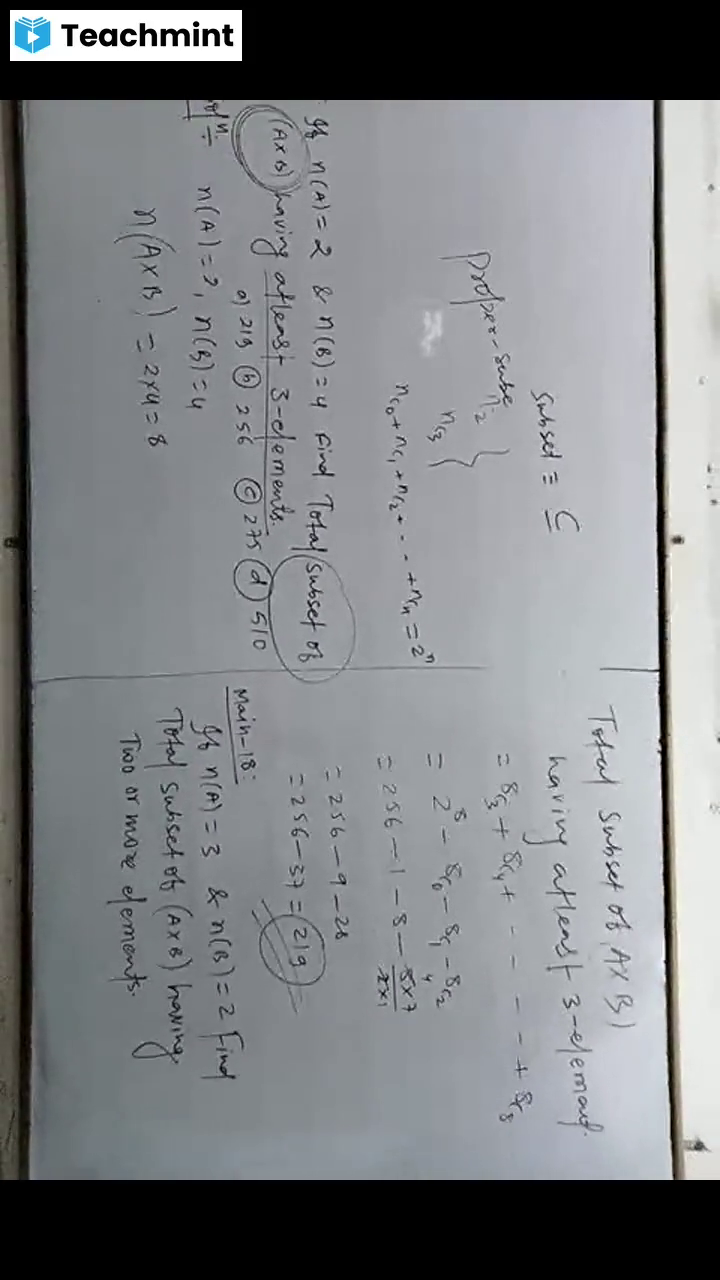 Teachmint
Subset ≡ ⊆
Proper-Subse
ⁿc₂
ⁿc₃
ⁿc₀ + ⁿc₁ + ⁿc₂ + - - - + ⁿcₙ = 2ⁿ
: If n(A) = 2 & n(B) = 4 Find Total Subset of
(A×B) having atleast 3-elements.
a) 219 (b) 256 (c) 275 (d) 510
n(A) = 2, n(B) = 4
n(A×B) = 2×4 = 8
Total Subset of A×B)
having atleast 3-element.
= ⁸c₃ + ⁸c₄ + - - - - + ⁸c₈
= 2⁸ - ⁸c₀ - ⁸c₁ - ⁸c₂
= 256 - 1 - 8 - 8×7/2×1
4
= 256 - 9 - 28
= 256 - 37 = 219
Main-18:
If n(A) = 3 & n(B) = 2 Find
Total Subset of (A×B) having
Two or more elements.